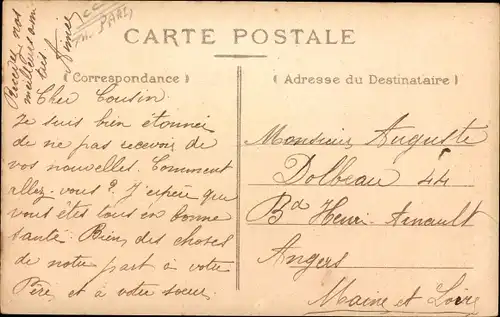 CARTE POSTALE
(Correspondance)
(Adresse du Destinataire)
Cher Cousin
Je suis bien étonnée
de ne pas recevoir de
vos nouvelles. Comment
allez-vous? J'espère que
vous êtes tous en bonne
santé. Bien des choses
de notre part à votre
Père et à votre soeur.
Recevez nos
meilleures ami
tiés
Monsieur Auguste
Dolbeau 44
Bd Henri-Arnault
Angers
Maine et Loire